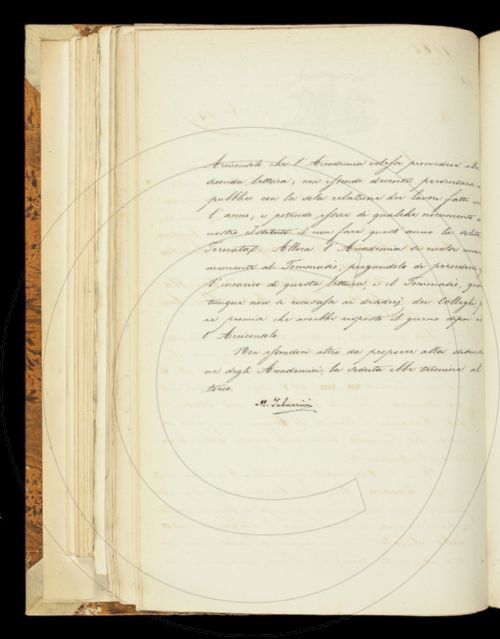 che l'Accademia volesse provvedere alla
seconda lettura, non essendo decente presentarsi a
pubblico con la sola relazione dei lavori fatti
l'anno, e potendo essere di qualche nocumento a
nostro Istituto il non fare quest'anno la solita
Tornata. Allora l'Accademia si
al Tommasi, pregandolo di prendere
l'incarico di questa lettura, e il Tommasi, quan
tunque non si ai desiderj dei Colleghi
che avrebbe risposto il giorno dipoi
l'
Non essendovi altro da proporre alla
ne degli Accademici, la seduta ebbe termine al
tocco.
M. Tabarrini